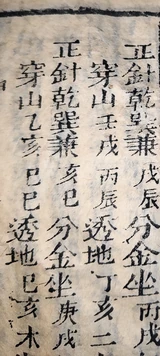 正針乾巽兼戊辰分金坐丙戌
穿山壬戌丙辰透地丁亥二
正針乾巽兼亥巳分金坐庚戌
穿山乙亥巳巳透地巳亥木